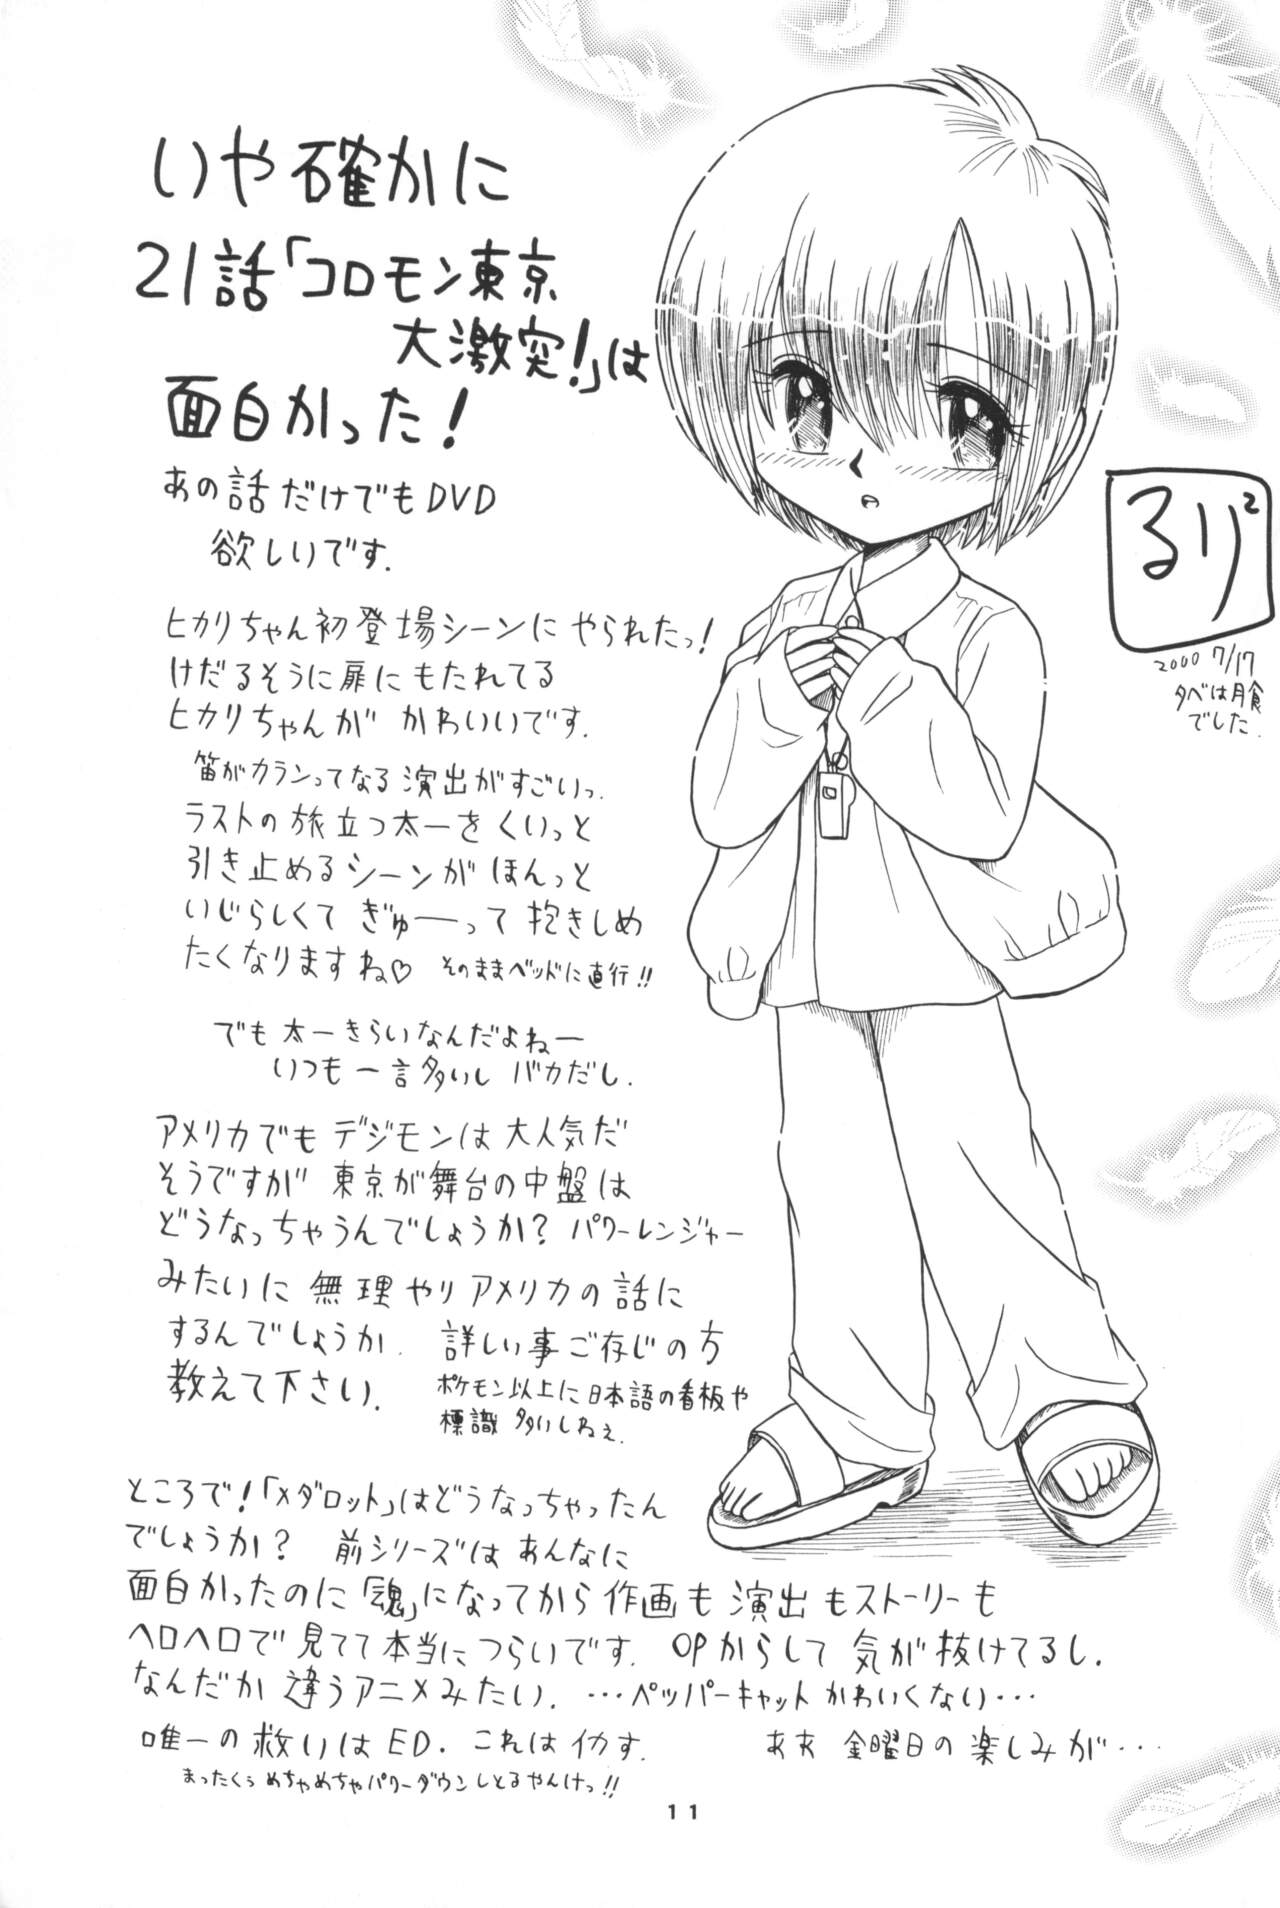 いや確かに
21話「コロモン東京
大激突!」は
面白かった!
あの話だけでもDVD
欲しいです.
ヒカリちゃん初登場シーンにやられたっ!
けだるそうに扉にもたれてる
ヒカリちゃんが かわいいです.
笛がカランってなる演出がすごいっ.
ラストの旅立つ太一をくいっと
引き止めるシーンがほんっと
いじらしくて ぎゅーーって抱きしめ
たくなりますね♡ そのままベッドに直行!!
でも太一きらいなんだよねー
いつも一言多いし バカだし.
アメリカでもデジモンは大人気だ
そうですが 東京が舞台の中盤は
どうなっちゃうんでしょうか? パワーレンジャー
みたいに無理やりアメリカの話に
するんでしょうか. 詳しい事ご存じの方
教えて下さい.
ポケモン以上に日本語の看板や
標識 多いしねぇ.
ところで!「メダロット」はどうなっちゃったん
でしょうか? 前シリーズは あんなに
面白かったのに「魂」になってから作画も演出もストーリーも
ヘロヘロで見てて本当につらいです. OPからして気が抜けてるし.
なんだか違うアニメみたい. …ペッパーキャットかわいくない…
唯一の救いはED. これはイカす. ああ 金曜日の楽しみが…
まったくぅ めちゃめちゃパワーダウンしとるやんけっ!!
るり²
2000 7/17
夕べは月食
でした.
11